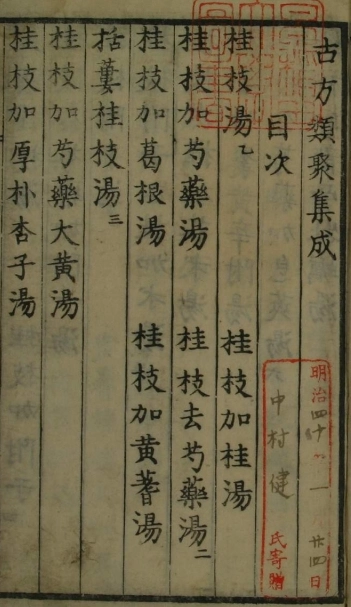 古方類聚集成
目次
桂枝湯乙 桂枝加桂湯
桂枝加芍藥湯 桂枝去芍藥湯二
桂枝加葛根湯 桂枝加黃蓍湯
括蔞桂枝湯三
桂枝加芍藥大黃湯
桂枝加厚朴杏子湯
明治四十 一 廿四日
中村健
氏寄贈